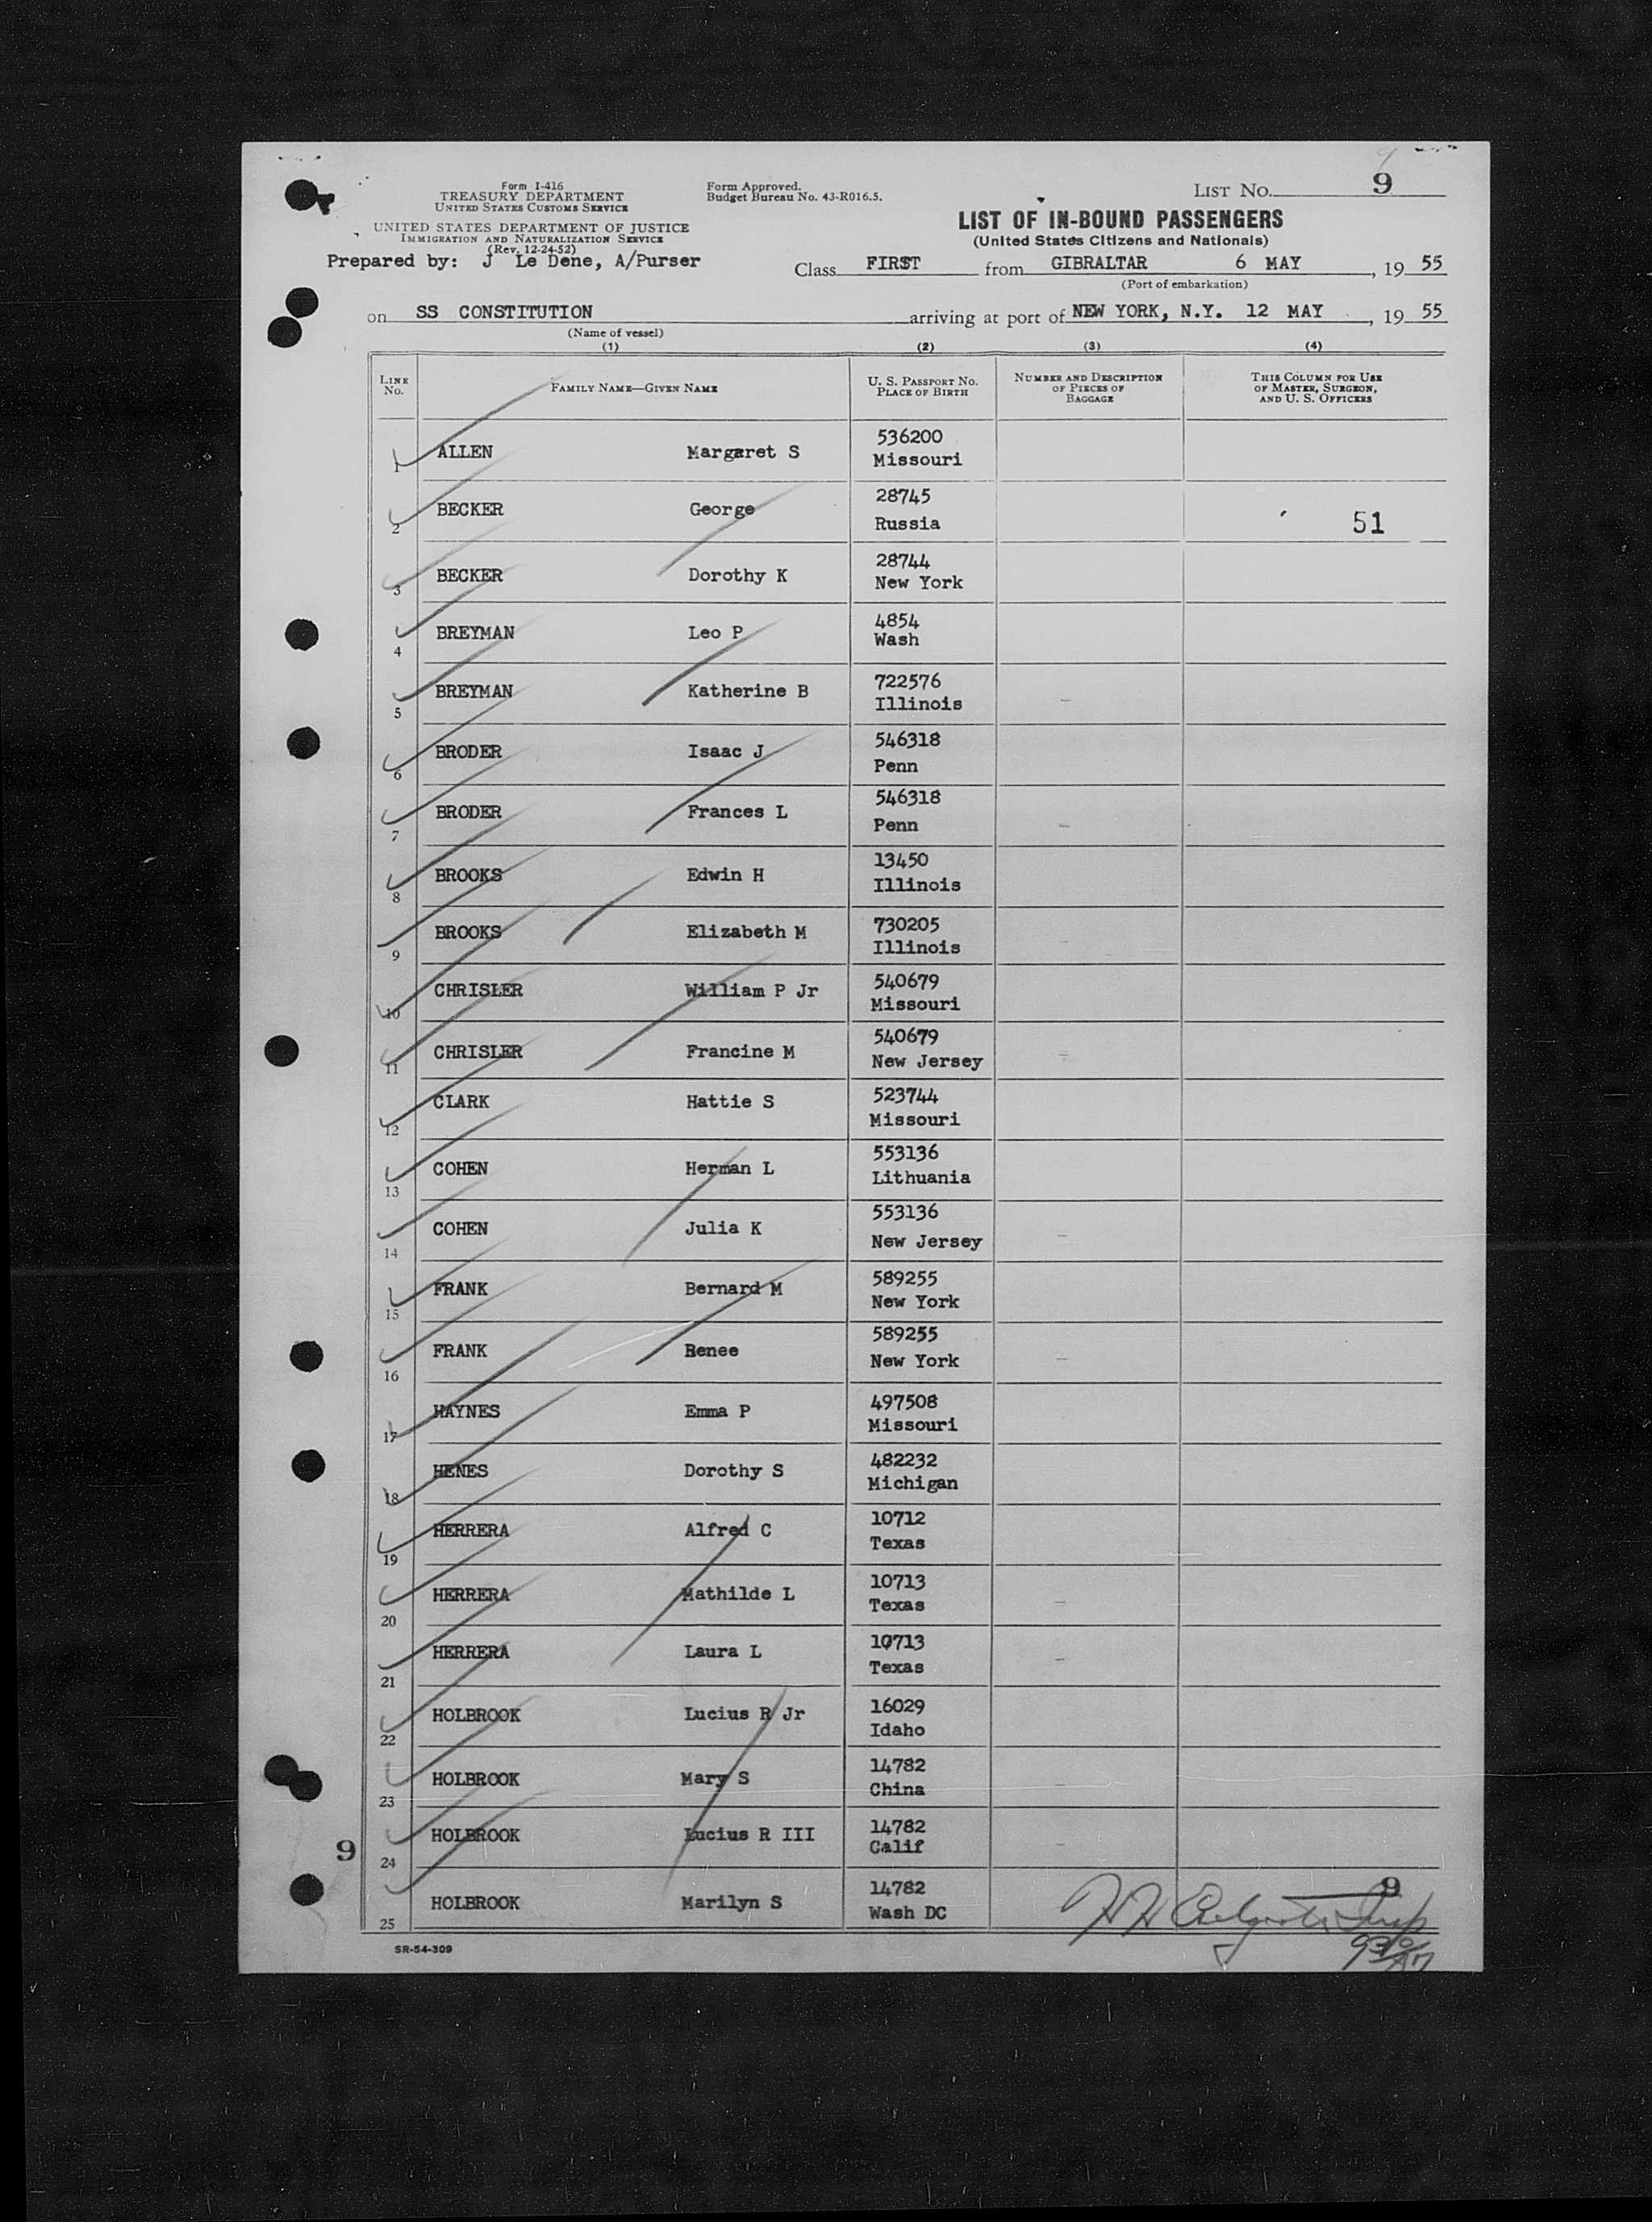 9
Form I-416
TREASURY DEPARTMENT
UNITED STATES CUSTOMS SERVICE
UNITED STATES DEPARTMENT OF JUSTICE
IMMIGRATION AND NATURALIZATION SERVICE
(Rev. 12-24-52)
Prepared by: J Le Dene, A/Purser
Form Approved.
Budget Bureau No. 43-R016.5.
LIST NO. 9
LIST OF IN-BOUND PASSENGERS
(United States Citizens and Nationals)
Class FIRST from GIBRALTAR 6 MAY, 19 55
(Port of embarkation)
on SS CONSTITUTION arriving at port of NEW YORK, N.Y. 12 MAY, 19 55
(Name of vessel)
(1) (2) (3) (4)
LINE NO. FAMILY NAME—GIVEN NAME U. S. PASSPORT NO. PLACE OF BIRTH NUMBER AND DESCRIPTION OF PIECES OF BAGGAGE THIS COLUMN FOR USE OF MASTER, SURGEON, AND U. S. OFFICERS
1 ALLEN Margaret S 536200 Missouri
2 BECKER George 28745 Russia 51
3 BECKER Dorothy K 28744 New York
4 BREYMAN Leo P 4854 Wash
5 BREYMAN Katherine B 722576 Illinois
6 BRODER Isaac J 546318 Penn
7 BRODER Frances L 546318 Penn
8 BROOKS Edwin H 13450 Illinois
9 BROOKS Elizabeth M 730205 Illinois
10 CHRISLER William P Jr 540679 Missouri
11 CHRISLER Francine M 540679 New Jersey
12 CLARK Hattie S 523744 Missouri
13 COHEN Herman L 553136 Lithuania
14 COHEN Julia K 553136 New Jersey
15 FRANK Bernard M 589255 New York
16 FRANK Renee 589255 New York
17 HAYNES Emma P 497508 Missouri
18 HENES Dorothy S 482232 Michigan
19 HERRERA Alfred C 10712 Texas
20 HERRERA Mathilde L 10713 Texas
21 HERRERA Laura L 10713 Texas
22 HOLBROOK Lucius R Jr 16029 Idaho
23 HOLBROOK Mary S 14782 China
24 HOLBROOK Lucius R III 14782 Calif
25 HOLBROOK Marilyn S 14782 Wash DC
9
9
SR-54-309